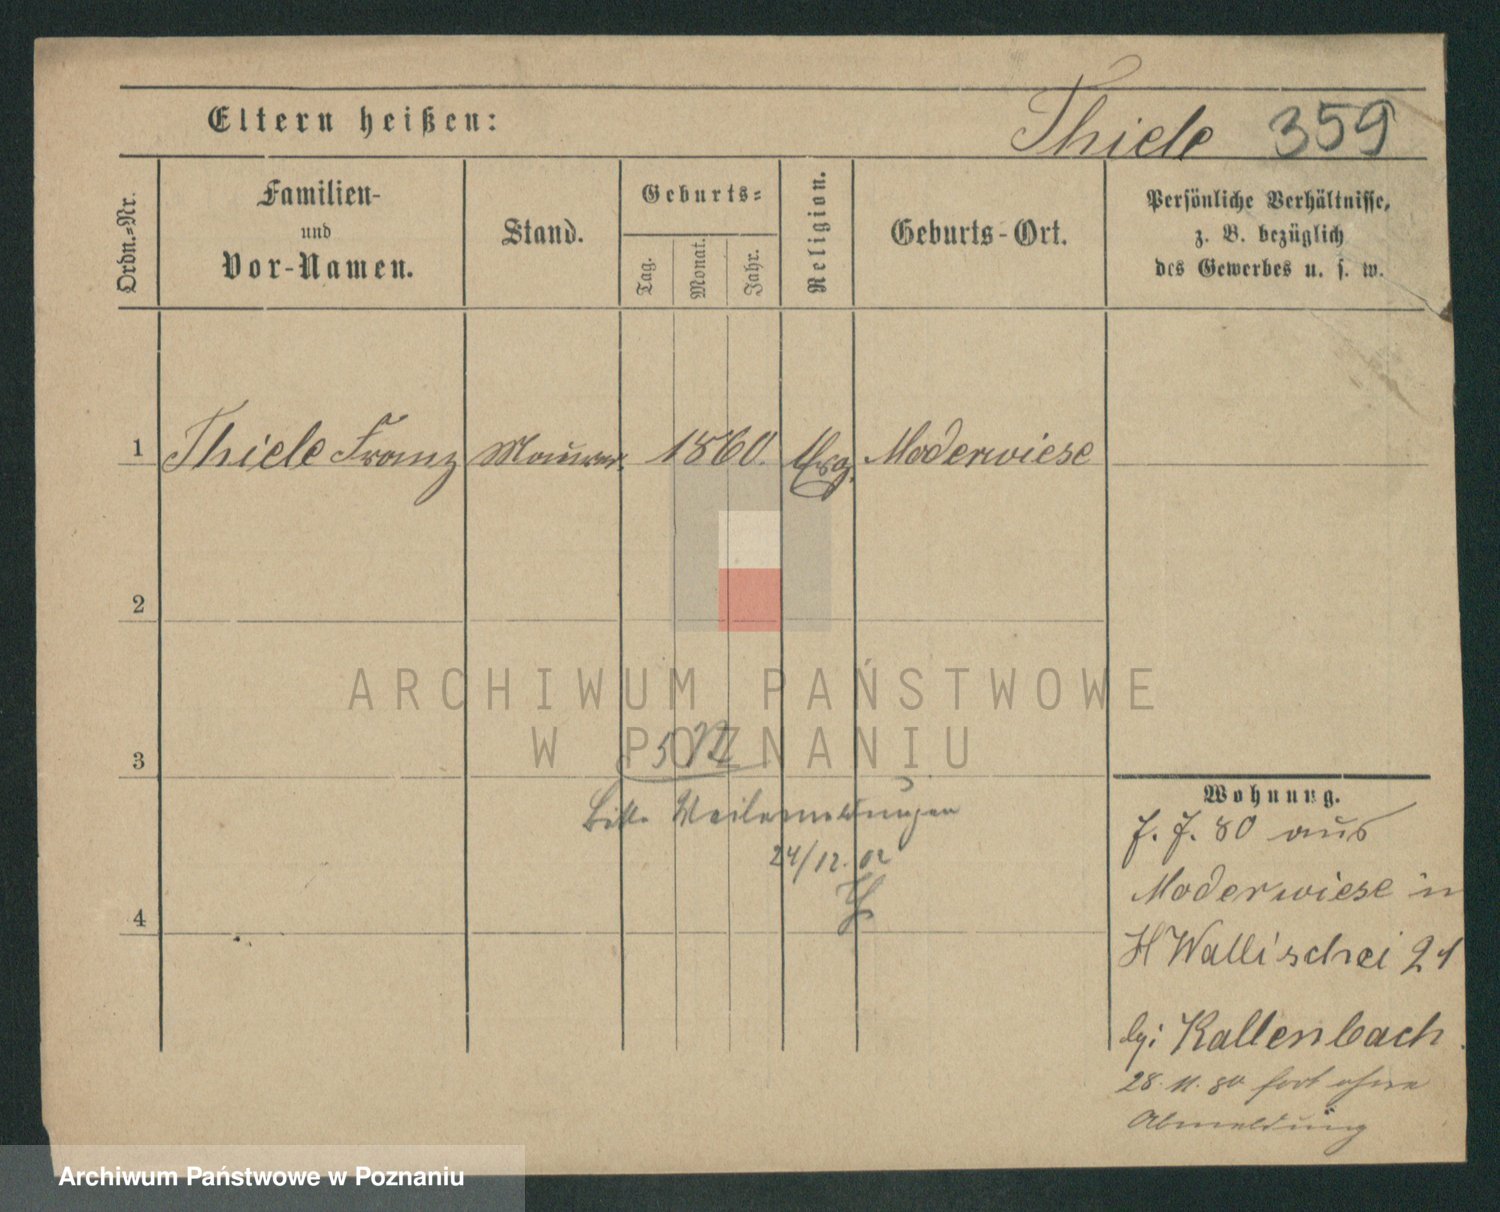 Eltern heißen: Thiele 359
Ordn.-Nr.
Familien-
und
Vor-Namen.
Stand.
Geburts-
Tag.
Monat.
Jahr.
Religion.
Geburts-Ort.
Persönliche Verhältnisse,
z. B. bezüglich
des Gewerbes u. s. w.
1 Thiele Franz Maurer. 1860. Evg. Moderwiese
2
ARCHIWUM PAŃSTWOWE
W POZNANIU
3
24/12. 02
4
Wohnung.
7. 7. 80 aus
Moderwiese in
H Wallischei 21
bei Kallenbach.
28. 11. 80 fort ohne
Abmeldung
Archiwum Państwowe w Poznaniu